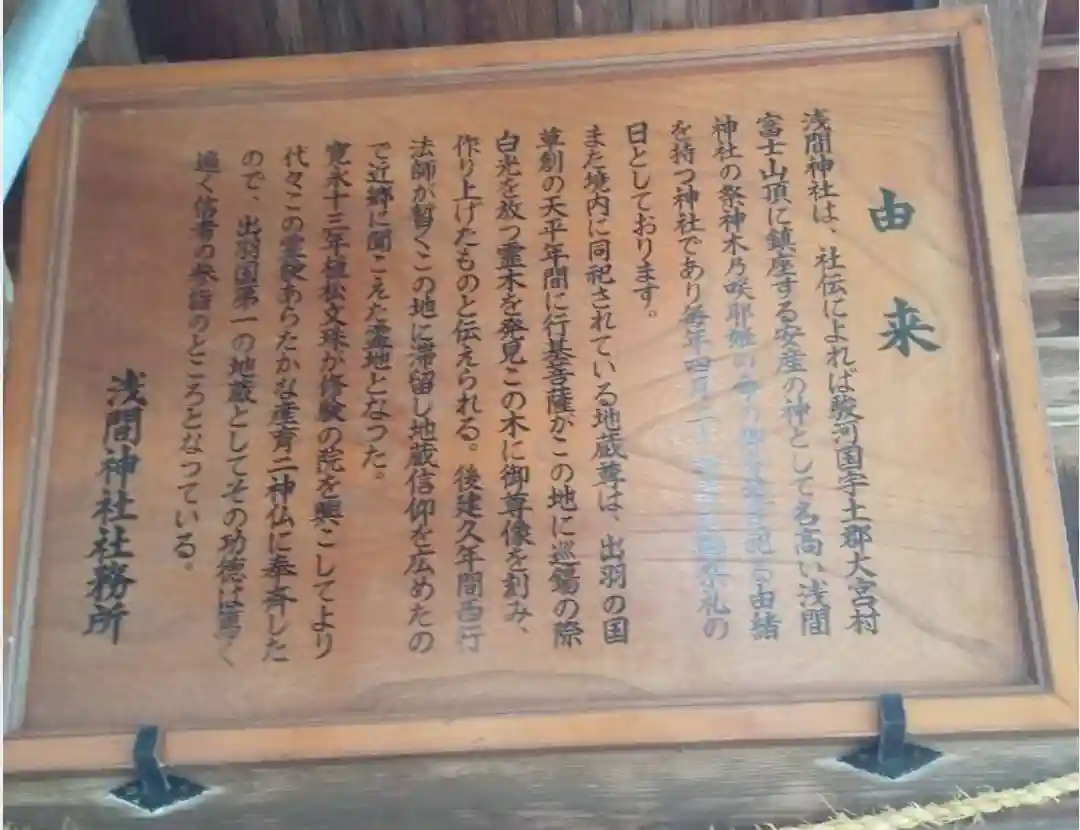 由来
浅間神社は、社伝によれば駿河国宇土郡大宮村
富士山頂に鎮座する安産の神として名高い浅間
神社の祭神木乃咲耶姫の命の御分霊を祀る由緒
を持つ神社であり毎年四月二十 祭礼の
日としております。
また境内に同祀されている地蔵尊は、出羽の国
草創の天平年間に行基菩薩がこの地に巡錫の際
白光を放つ霊木を発見この木に御尊像を刻み、
作り上げたものと伝えられる。後建久年間西行
法師が暫くこの地に滞留し地蔵信仰を広めたの
で近郷に聞こえた霊地となった。
寛永十三年植松文珠が修験の院を興こしてより
代々この霊験あらたかな産育二神仏に奉斉した
ので、出羽国第一の地蔵としてその功徳は篤く
遍く信者の参詣のところとなっている。
浅間神社社務所